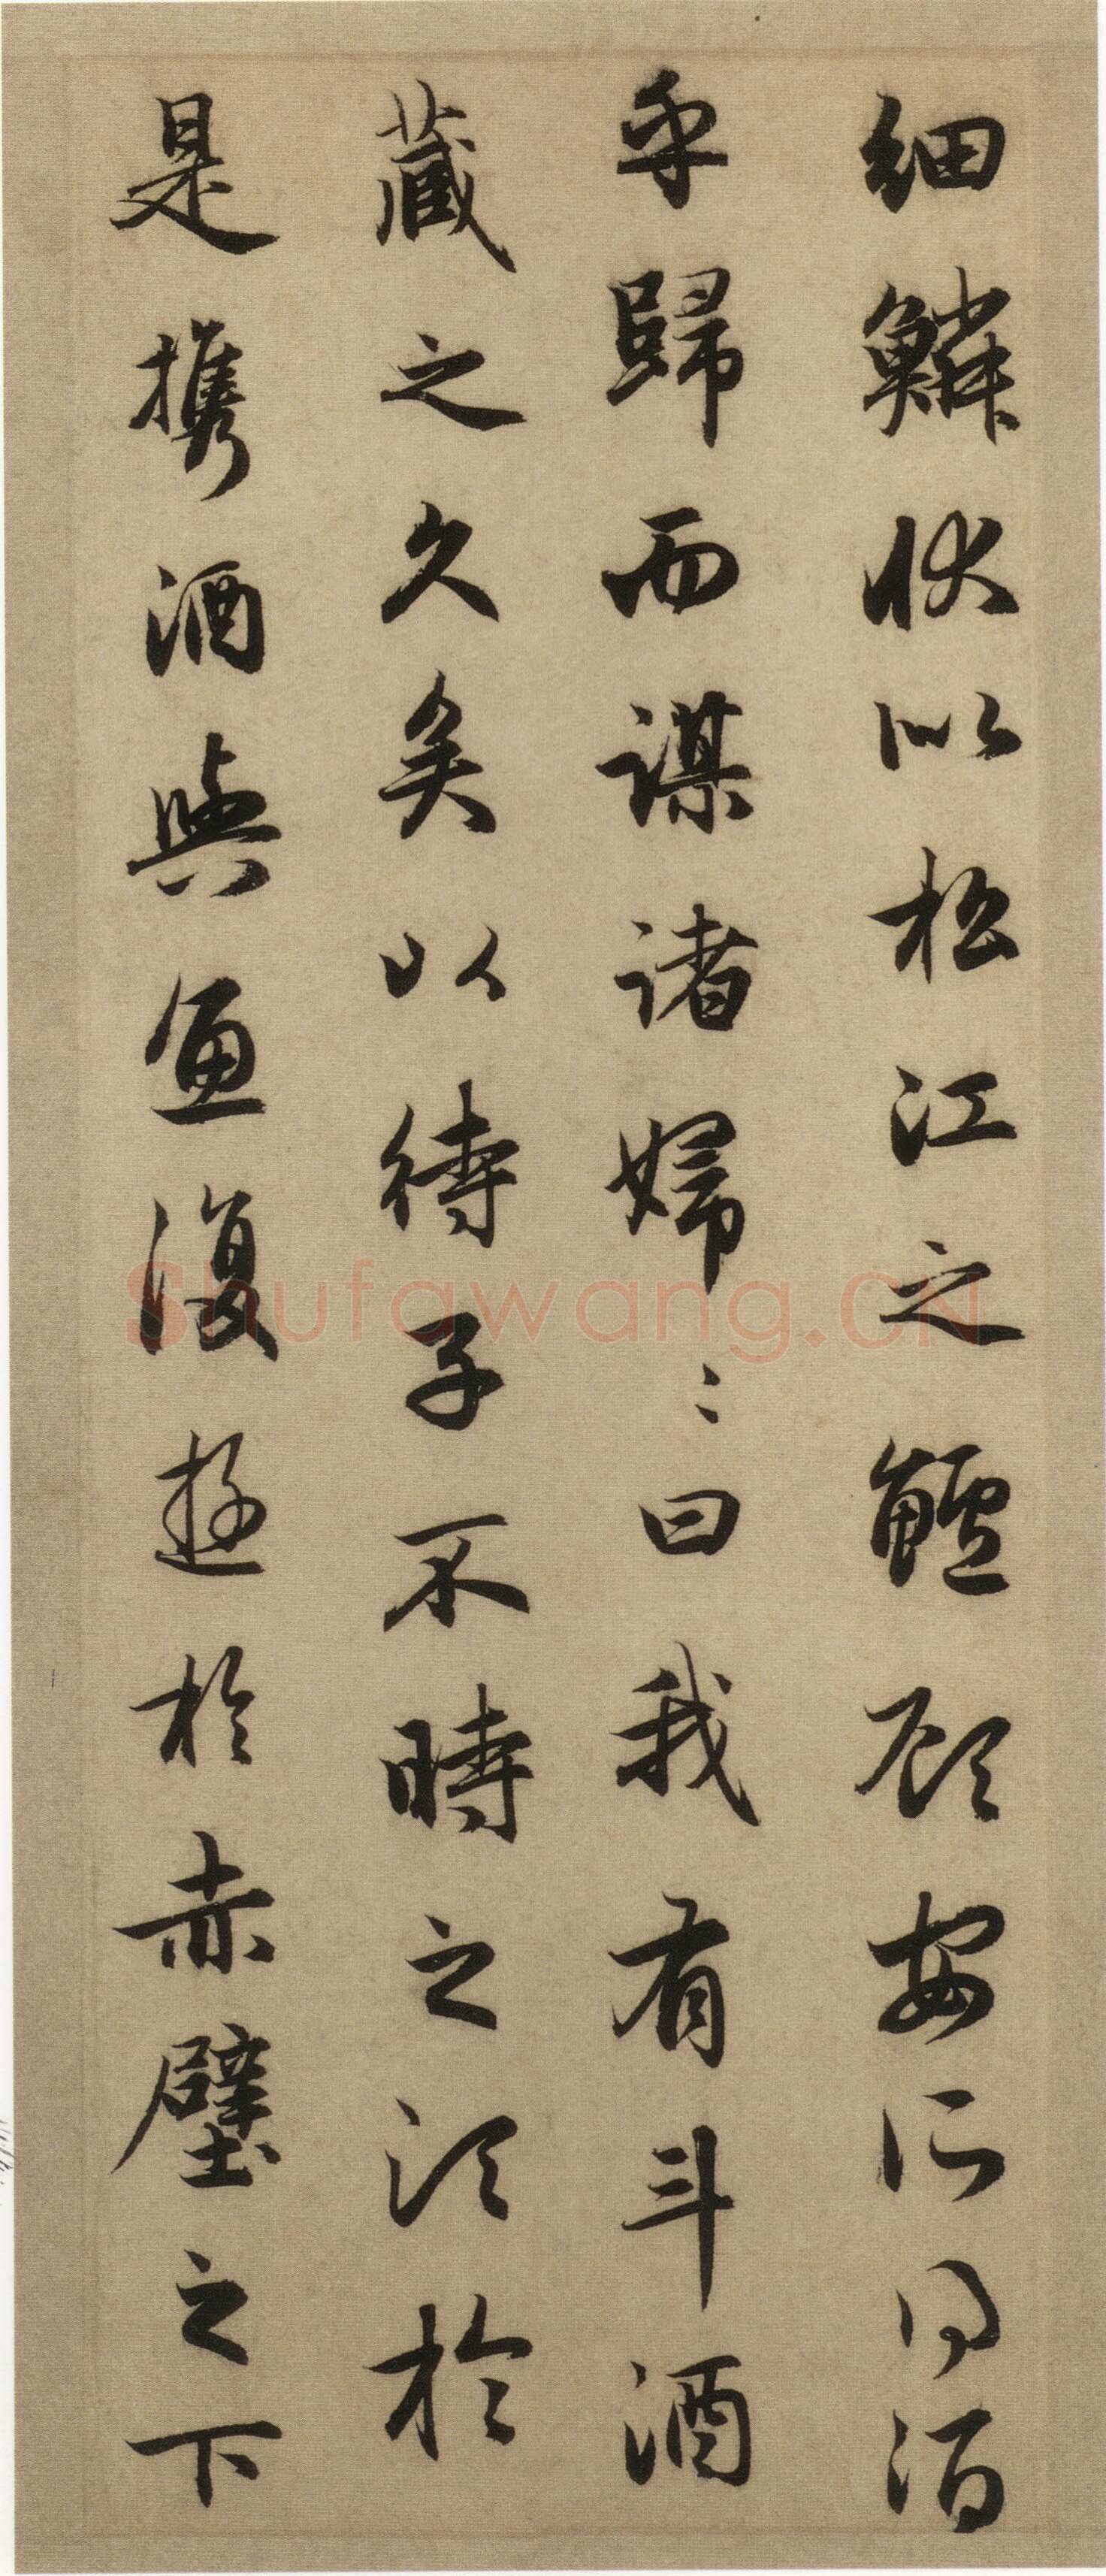 細鱗狀似松江之鱸顧安所得酒
乎歸而謀諸婦〻曰我有斗酒
藏之久矣以待子不時之須於
是携酒與魚復遊於赤壁之下
Shufawang.CN